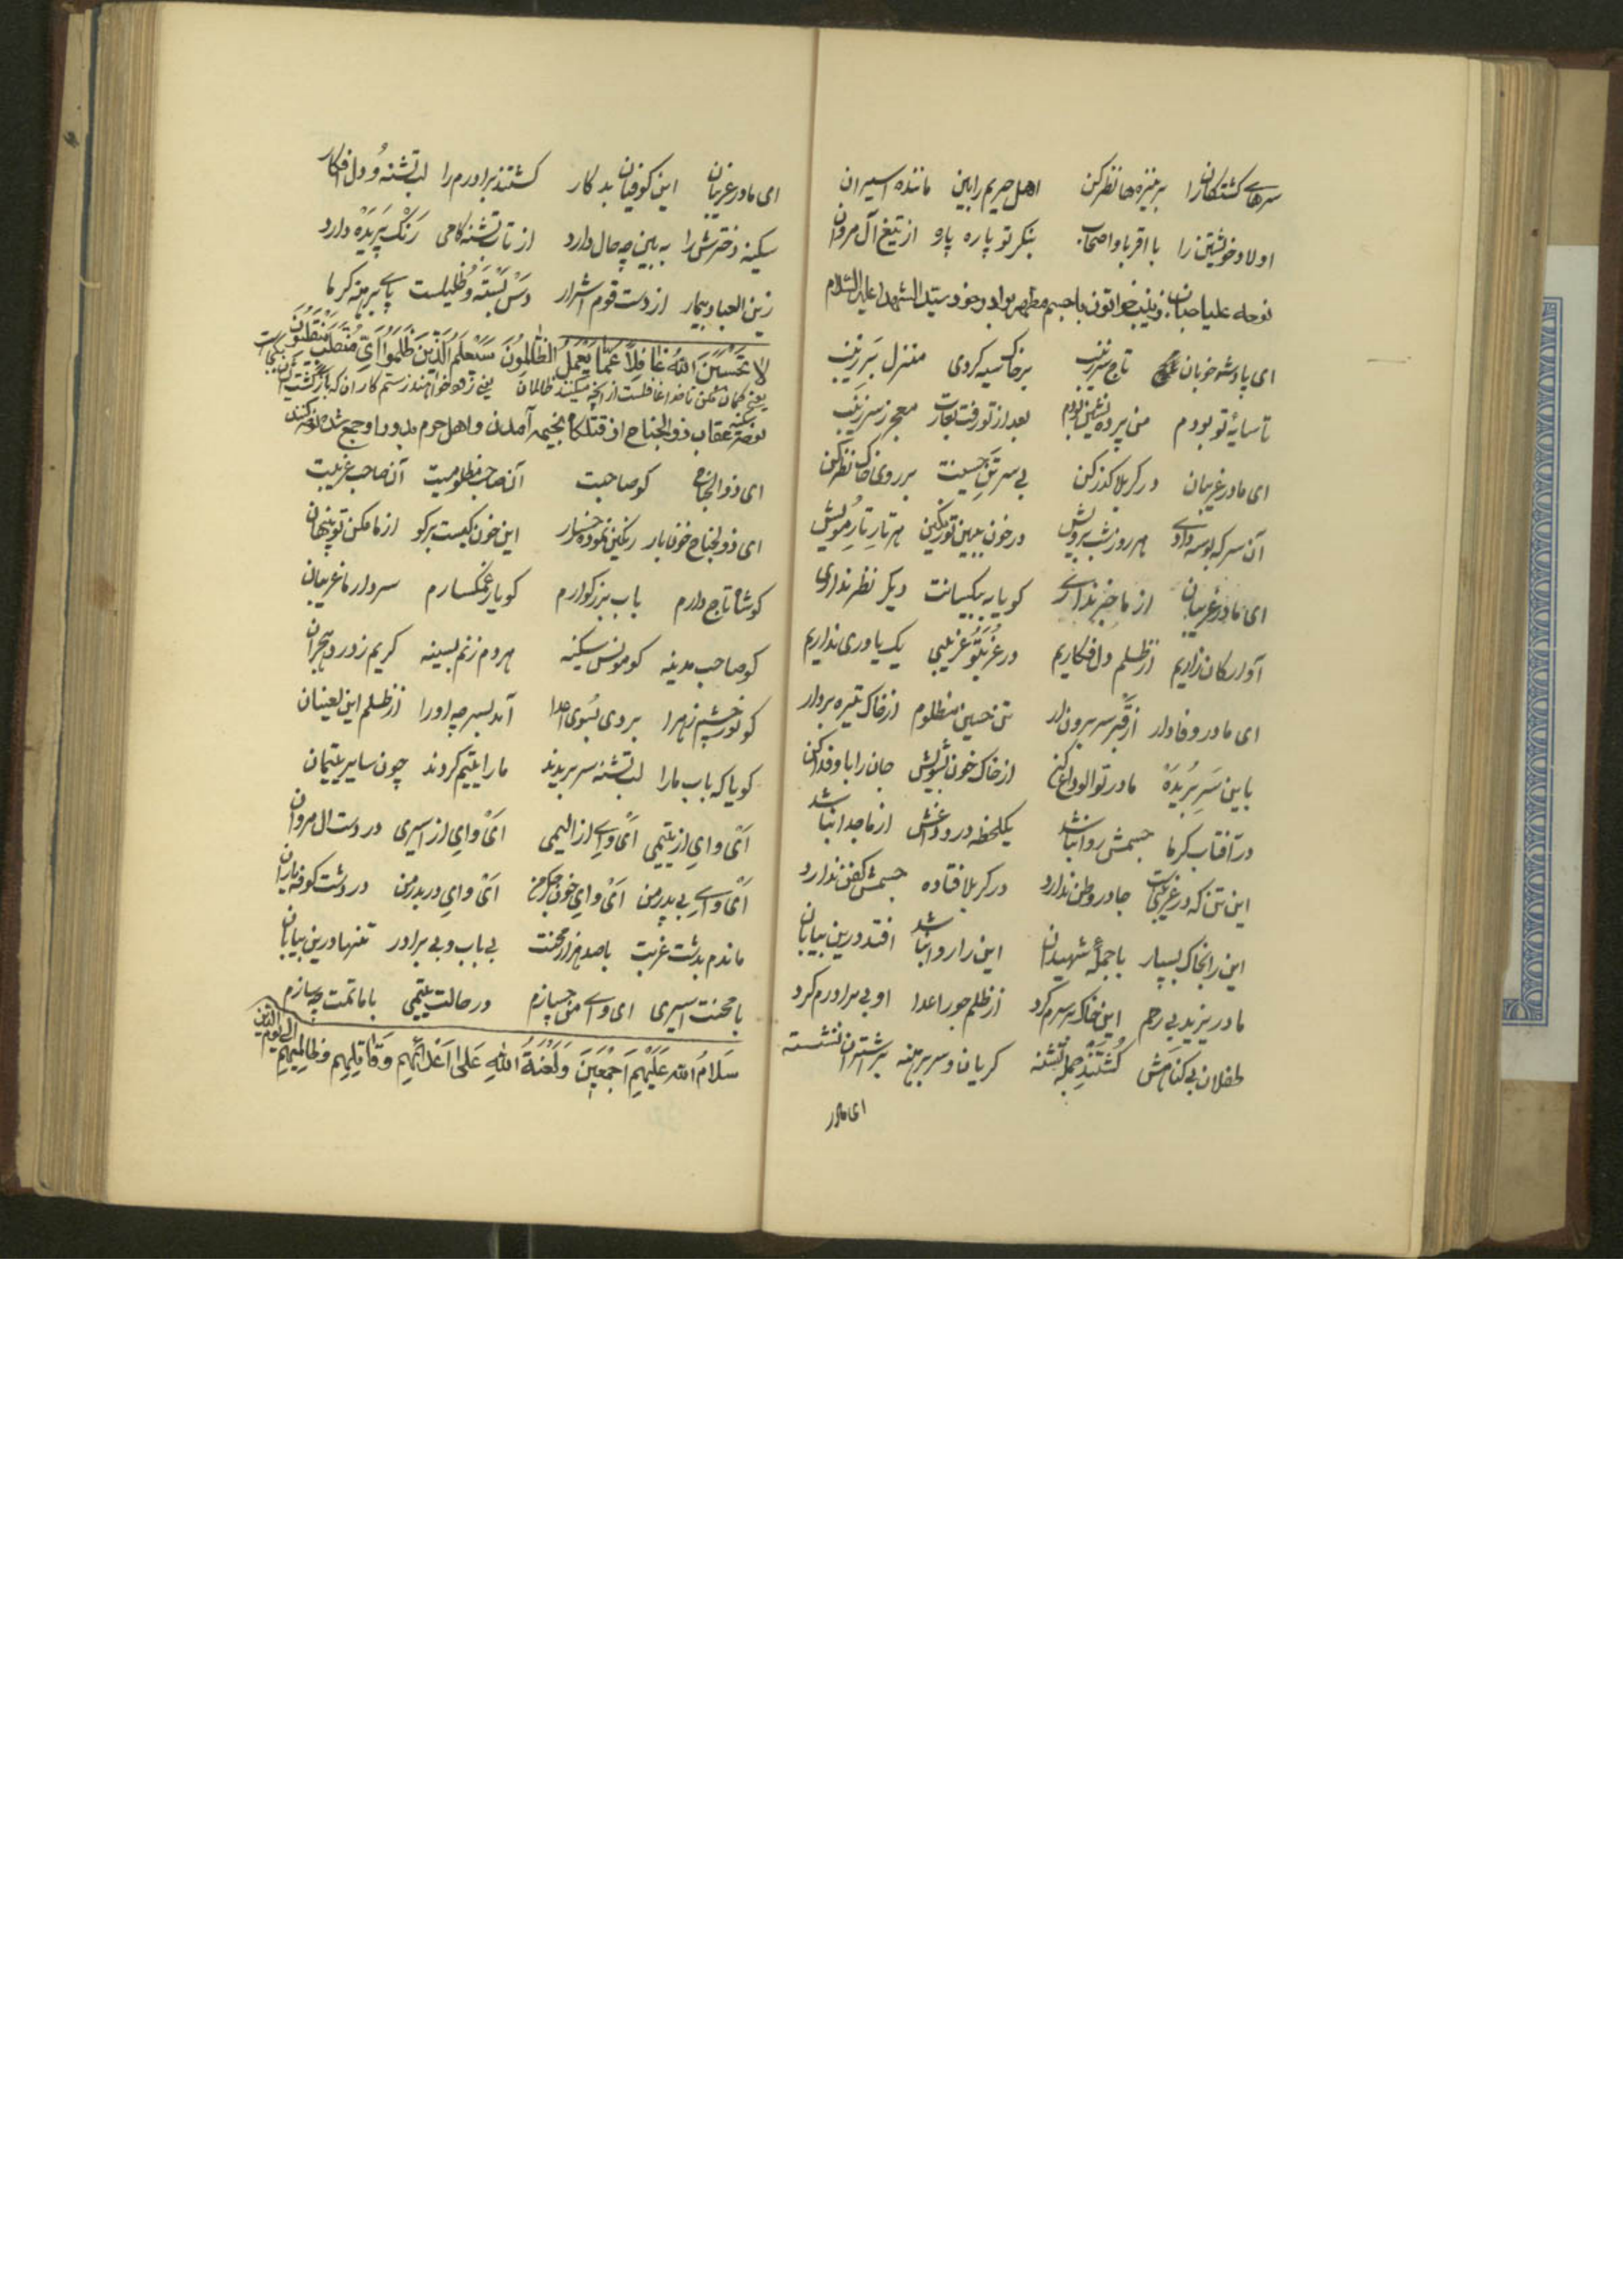 سرهای کشتکانرا بر نیزه ها نظر کن اهل حریم را بین مانند اسیران
اولاد خویشتن را با اقربا و اصحاب بنکر تو پاره پاره از تیغ آل مروان
نوحه علیا جناب زینب خواتون با جسم مطهر برادر خود سید الشهدا علیه السلام
ای پادشه خوبان تاج سر زینب بر خاک سیه کردی منزل بر زینب
تا سایهٔ تو بودم من پرده نشین بودم بعد از تو رفت بغارت معجر ز سر زینب
ای مادر غریبان در کربلا کذر کن بی سر تن حسینت بر روی خاک نظر کن
آن سر که بوسه دادی هر روز شب برویش در خون ببین تو رنکین هر تار تار مویش
ای مادر غریبان از ما خبر نداری کویا به بیکسانت دیکر نظر نداری
آواره کان زاریم از ظلم دل فکاریم در غربت و غریبی یک یاوری نداریم
ای مادر وفادار از قبر سر برون ار تن حسین مظلوم از خاک تیره بردار
با این سر بریده مادر تو الوداع کن از خاک خون بشویش جان را با و فدا کن
در آفتاب کرما جسمش روا نباشد یکلحظه در وداعش از ما جدا نباشد
این تن که در غریبست جا در وطن ندارد در کربلا فتاده جسمش کفن ندارد
این را بخاک بسپار با جملهٔ شهیدان این را روا نباشد افتد درین بیابان
مادر یزید بی رحم این خاک بر سرم کرد از ظلم جور اعدا او بی برادرم کرد
طفلان بی کناهش کشتند جمله تشنه کریان و سر برهنه بر شتران نشسته
ای مادر
ای مادر غریبان این کوفیان بد کار کشتند برادرم را لب تشنه و دل افکار
سکینه دخترش را به بین چه حال دارد از تاب تشنه کامی رنک پریده دارد
زین العباد بیمار از دست قوم اشرار دس بسته و ظلیلست پای برهنه کرما
لا تحسبن الله غافلا عما یعمل الظالمون سیعلم الذین ظلموا ای منقلب ینقلبون
یعنی کمان مکن تا خدا غافلست از انچه میکنند ظالمان یعنی زود خواهند ستم کاران که باز کشت ایشان بکجاست
عقاب ذو الجناح از قتلکاه بخیمه آمدن و اهل حرم بدور او جمع شدن نوحه کنند
ای ذو الجناح کو صاحبت آن صاحب مظلومیت آن صاحب غریبت
ای ذو لجناح خونبار رنکین نموده رخسار این خون کیست برکو از ما مکن تو پنهان
کو شاه تاج دارم باب بزرکوارم کو یار غمکسارم سردار ما غریبان
کو صاحب مدینه کو مونس سکینه هر دم زنم بسینه کریم ز درد هجران
کو نور چشم زهرا بردی بسوی اعدا آمد بسر چه اورا از ظلم این لعینان
کویا که باب مارا لب تشنه سر بریدند مارا یتیم کردند چون سایر یتیمان
ای وای از یتیمی ای وای از الیمی ای وای از اسیری در دست ال مروان
ای وای بی پدر من ای وای خون جکر من ای وای در بدر من در دشت کوفه یاران
ماندم بدشت غربت با صد هزار محنت بی باب و بی برادر تنها درین بیابان
با محنت اسیری ای وای من چسازم در حالت یتیمی با ماتمت چه سازم
سلام الله علیهم اجمعین و لعنة الله علی اعدائهم و قاتلیهم و ظالمیهم الی یوم الدین